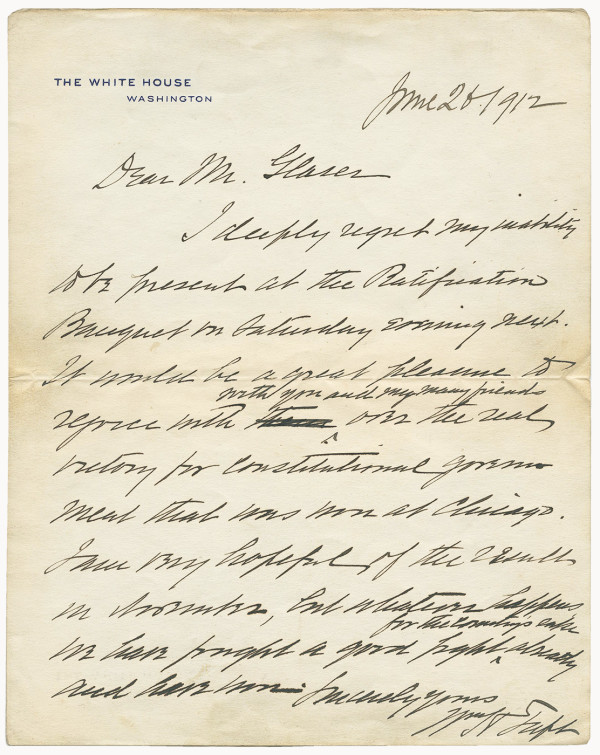 THE WHITE HOUSE
WASHINGTON
June 26. 1912
Dear Mr. Glaser
I deeply regret my inability
to be present at the Ratification
Banquet on Saturday evening next.
It would be a great pleasure to
with you and my many friends
rejoice with them over the real
victory for Constitutional govern
ment that was won at Chicago.
I am very hopeful of the result
in November, but whatever happens
for the country's sake
we have fought a good fight already
and have won. Sincerely yours
Wm H Taft